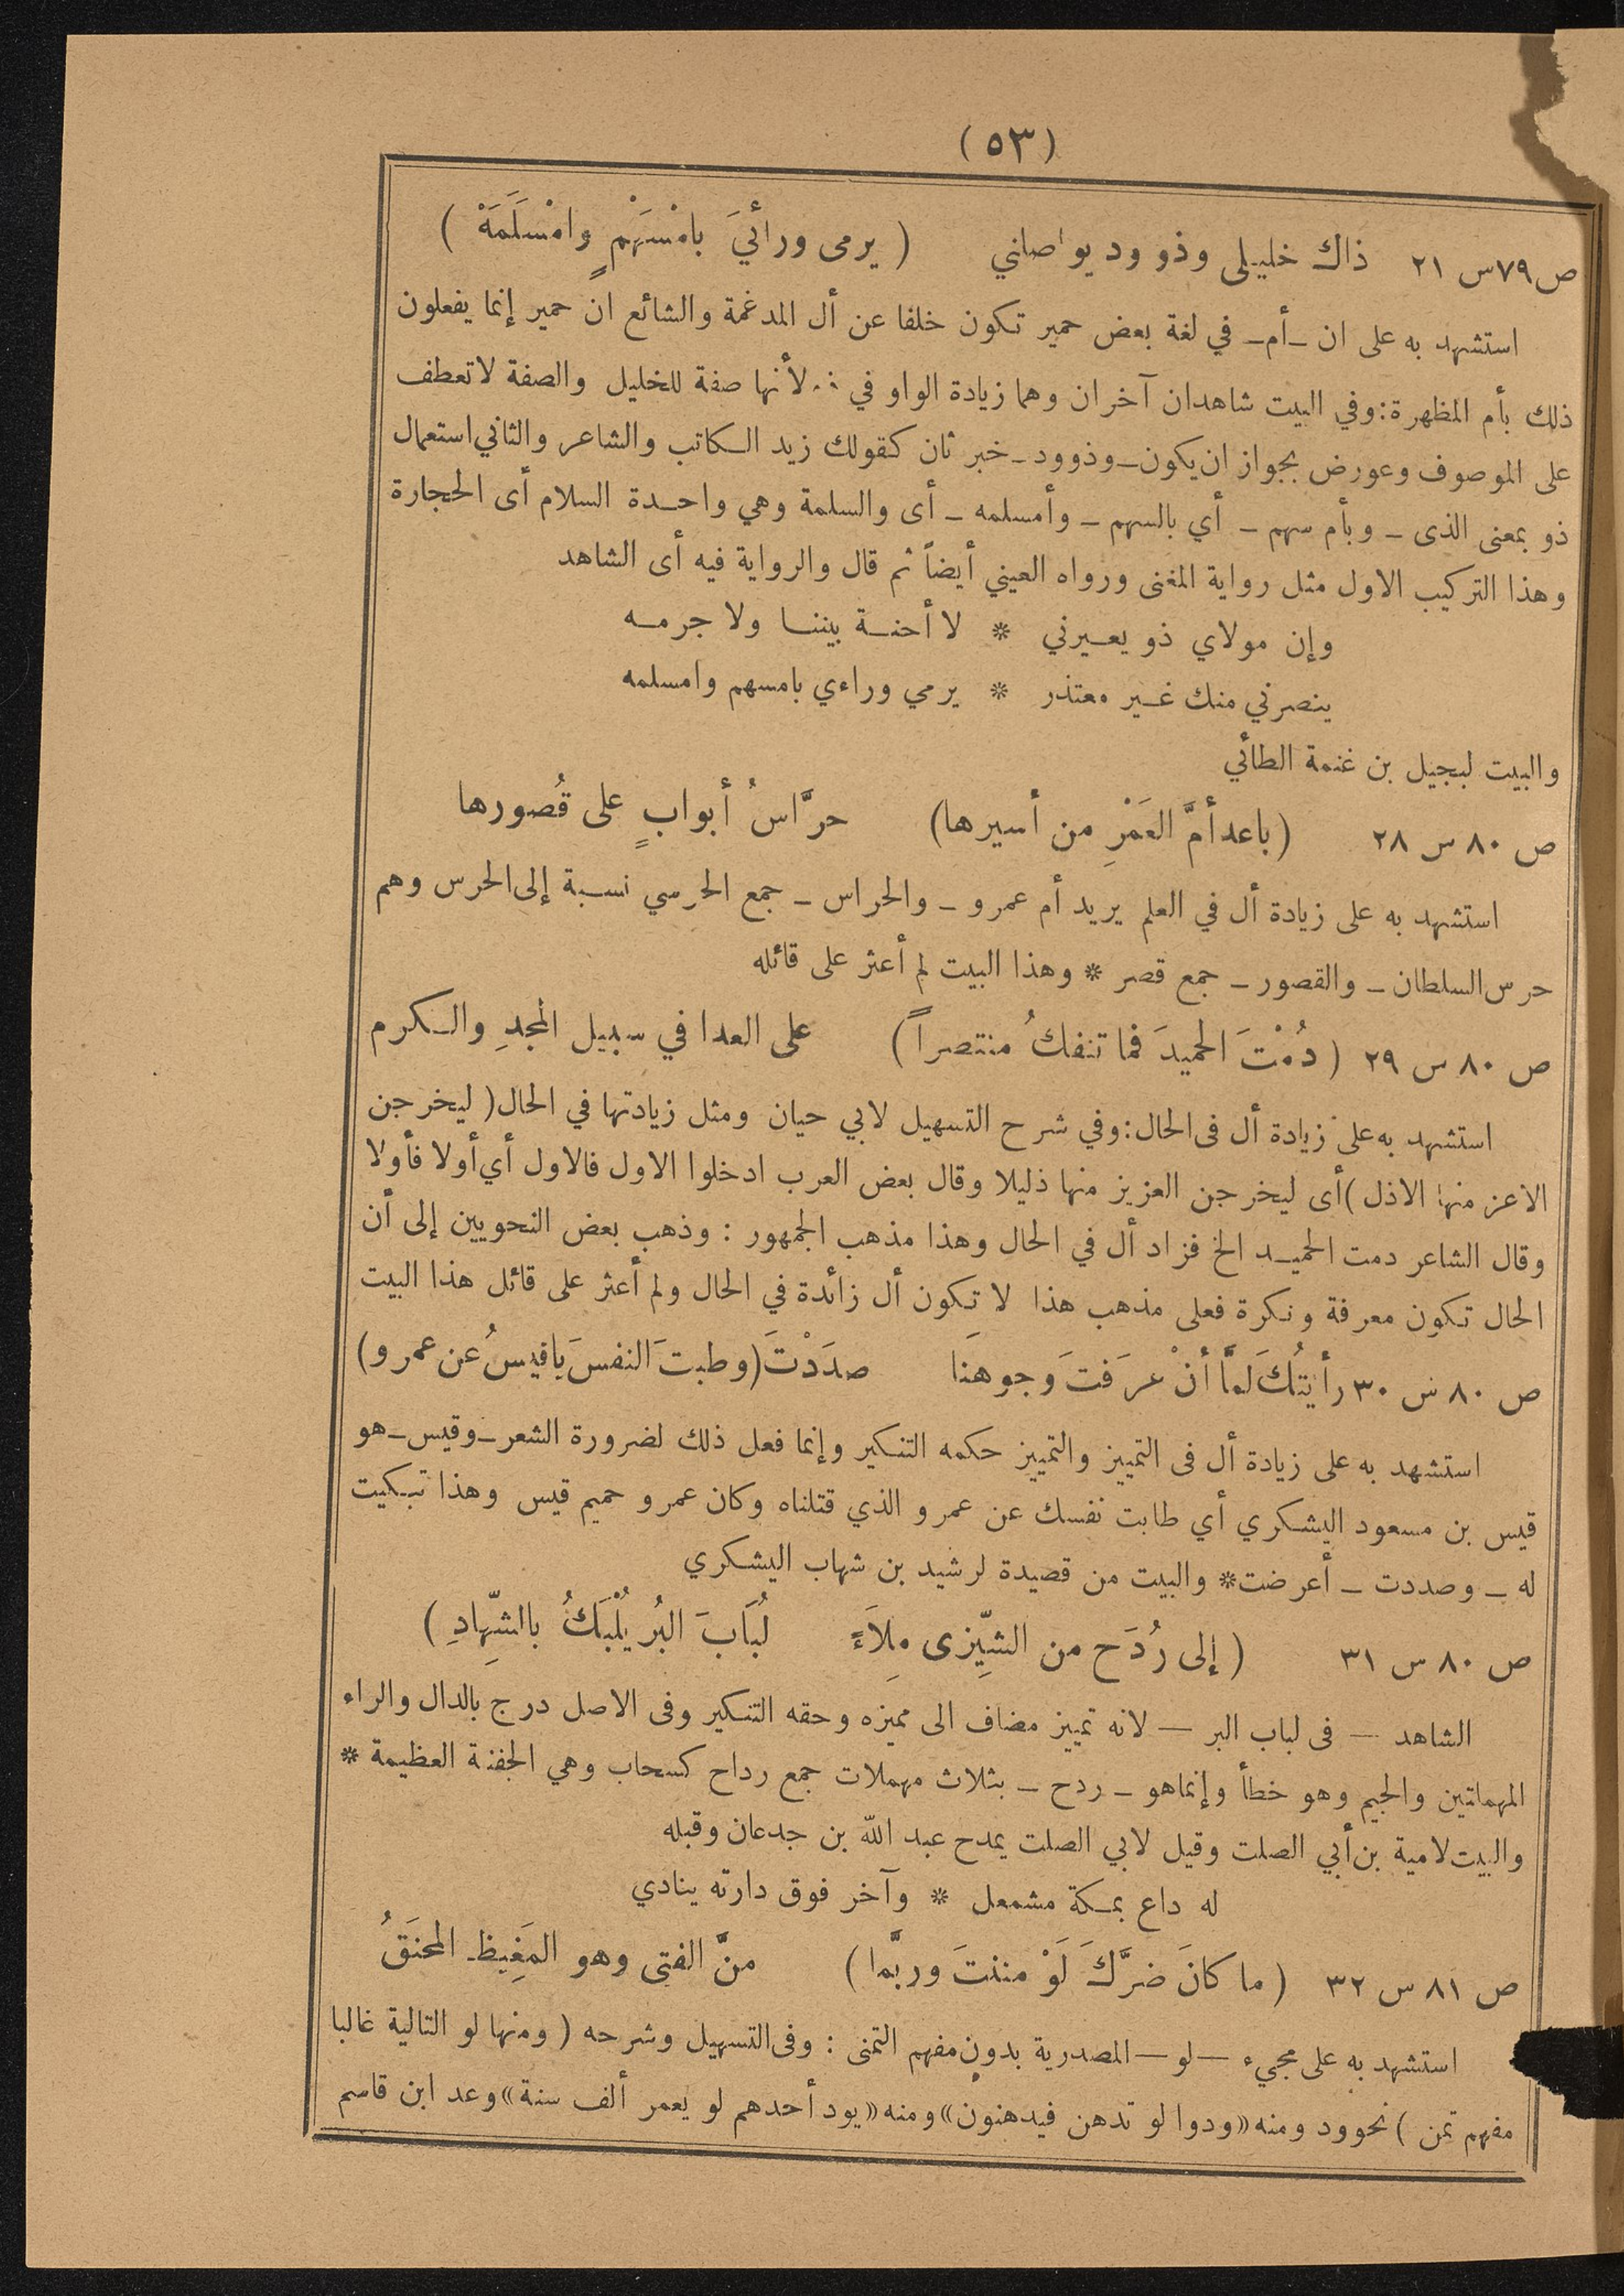 (٥٣)
ص٧٩س ٢١ ذاك خليلى وذو ود يواصلني ( يرمى ورأئيَ بامْسَهْمٍ وامْسَلَمَهْ )
استشهد به على ان ـ أم ـ في لغة بعض حمير تكون خلفا عن أل المدغمة والشائع ان حمير إنما يفعلون
ذلك بأم المظهرة : وفي البيت شاهدان آخران وهما زيادة الواو في لأنها صفة للخليل والصفة لا تعطف
على الموصوف وعورض بجواز ان يكون ـ وذوود ـ خبر ثان كقولك زيد الكاتب والشاعر والثاني استعمال
ذو بمعنى الذى ـ وبأم سهم ـ أي بالسهم ـ وأمسلمه ـ أى والسلمة وهي واحدة السلام أى الحجارة
وهذا التركيب الاول مثل رواية المغنى ورواه العيني أيضاً ثم قال والرواية فيه أى الشاهد
وإن مولاي ذو يعيرني * لا أحنة بيننا ولا جرمه
ينصرني منك غير معتذر * يرمي وراءي بامسهم وامسلمه
والبيت لبجيل بن غنمة الطائي
ص ٨٠ س ٢٨ (باعد أمَّ العَمْرِ من أسيرها) حرَّاسُ أبوابٍ على قُصورها
استشهد به على زيادة أل في العلم يريد أم عمرو ـ والحراس ـ جمع الحرسي نسبة إلى الحرس وهم
حرس السلطان ـ والقصور ـ جمع قصر * وهذا البيت لم أعثر على قائله
ص ٨٠ س ٢٩ ( دُمْتَ الحميدَ فما تنفكُ منتصراً ) على العدا في سبيل المجدِ والكرم
استشهد به على زيادة أل فى الحال : وفي شرح التسهيل لابي حيان ومثل زيادتها في الحال ( ليخرجن
الاعز منها الاذل ) أى ليخرجن العزيز منها ذليلا وقال بعض العرب ادخلوا الاول فالاول أي أولا فأولا
وقال الشاعر دمت الحميد الخ فزاد أل في الحال وهذا مذهب الجمهور : وذهب بعض النحويين إلى أن
الحال تكون معرفة ونكرة فعلى مذهب هذا لا تكون أل زائدة في الحال ولم أعثر على قائل هذا البيت
ص ٨٠ س ٣٠ رأيتُكَ لمَّا أنْ عرَفتَ وجوهنَا صدَدْتَ (وطبتَ النفسَ ياقيسُ عن عمرو)
استشهد به على زيادة أل فى التمييز والتمييز حكمه التنكير وإنما فعل ذلك لضرورة الشعر ـ وقيس ـ هو
قيس بن مسعود اليشكري أي طابت نفسك عن عمرو الذي قتلناه وكان عمرو حميم قيس وهذا تبكيت
له ـ وصددت ـ أعرضت * والبيت من قصيدة لرشيد بن شهاب اليشكري
ص ٨٠ س ٣١ ( إلى رُدَح من الشِّيزى مِلاَءً لُبَابَ البُر يُلْبَكُ بالشِّهادِ )
الشاهد — فى لباب البر — لانه تمييز مضاف الى مميزه وحقه التنكير وفى الاصل درج بالدال والراء
المهملتين والجيم وهو خطأ وإنماهو ـ ردح ـ بثلاث مهملات جمع رداح كسحاب وهي الجفنة العظيمة *
والبيت لامية بن أبي الصلت وقيل لابي الصلت يمدح عبد الله بن جدعان وقبله
له داع بمكة مشمعل * وآخر فوق دارته ينادي
ص ٨١ س ٣٢ ( ما كانَ ضرَّكَ لَوْ مننتَ وربَّما ) منَّ الفتى وهو المَغِيظ المحنَقُ
استشهد به على مجيء — لو — المصدرية بدون مفهم التمنى : وفى التسهيل وشرحه ( ومنها لو التالية غالبا
مفهم تمن ) نحوود ومنه «ودوا لو تدهن فيدهنون» ومنه «يود أحدهم لو يعمر ألف سنة» وعد ابن قاسم